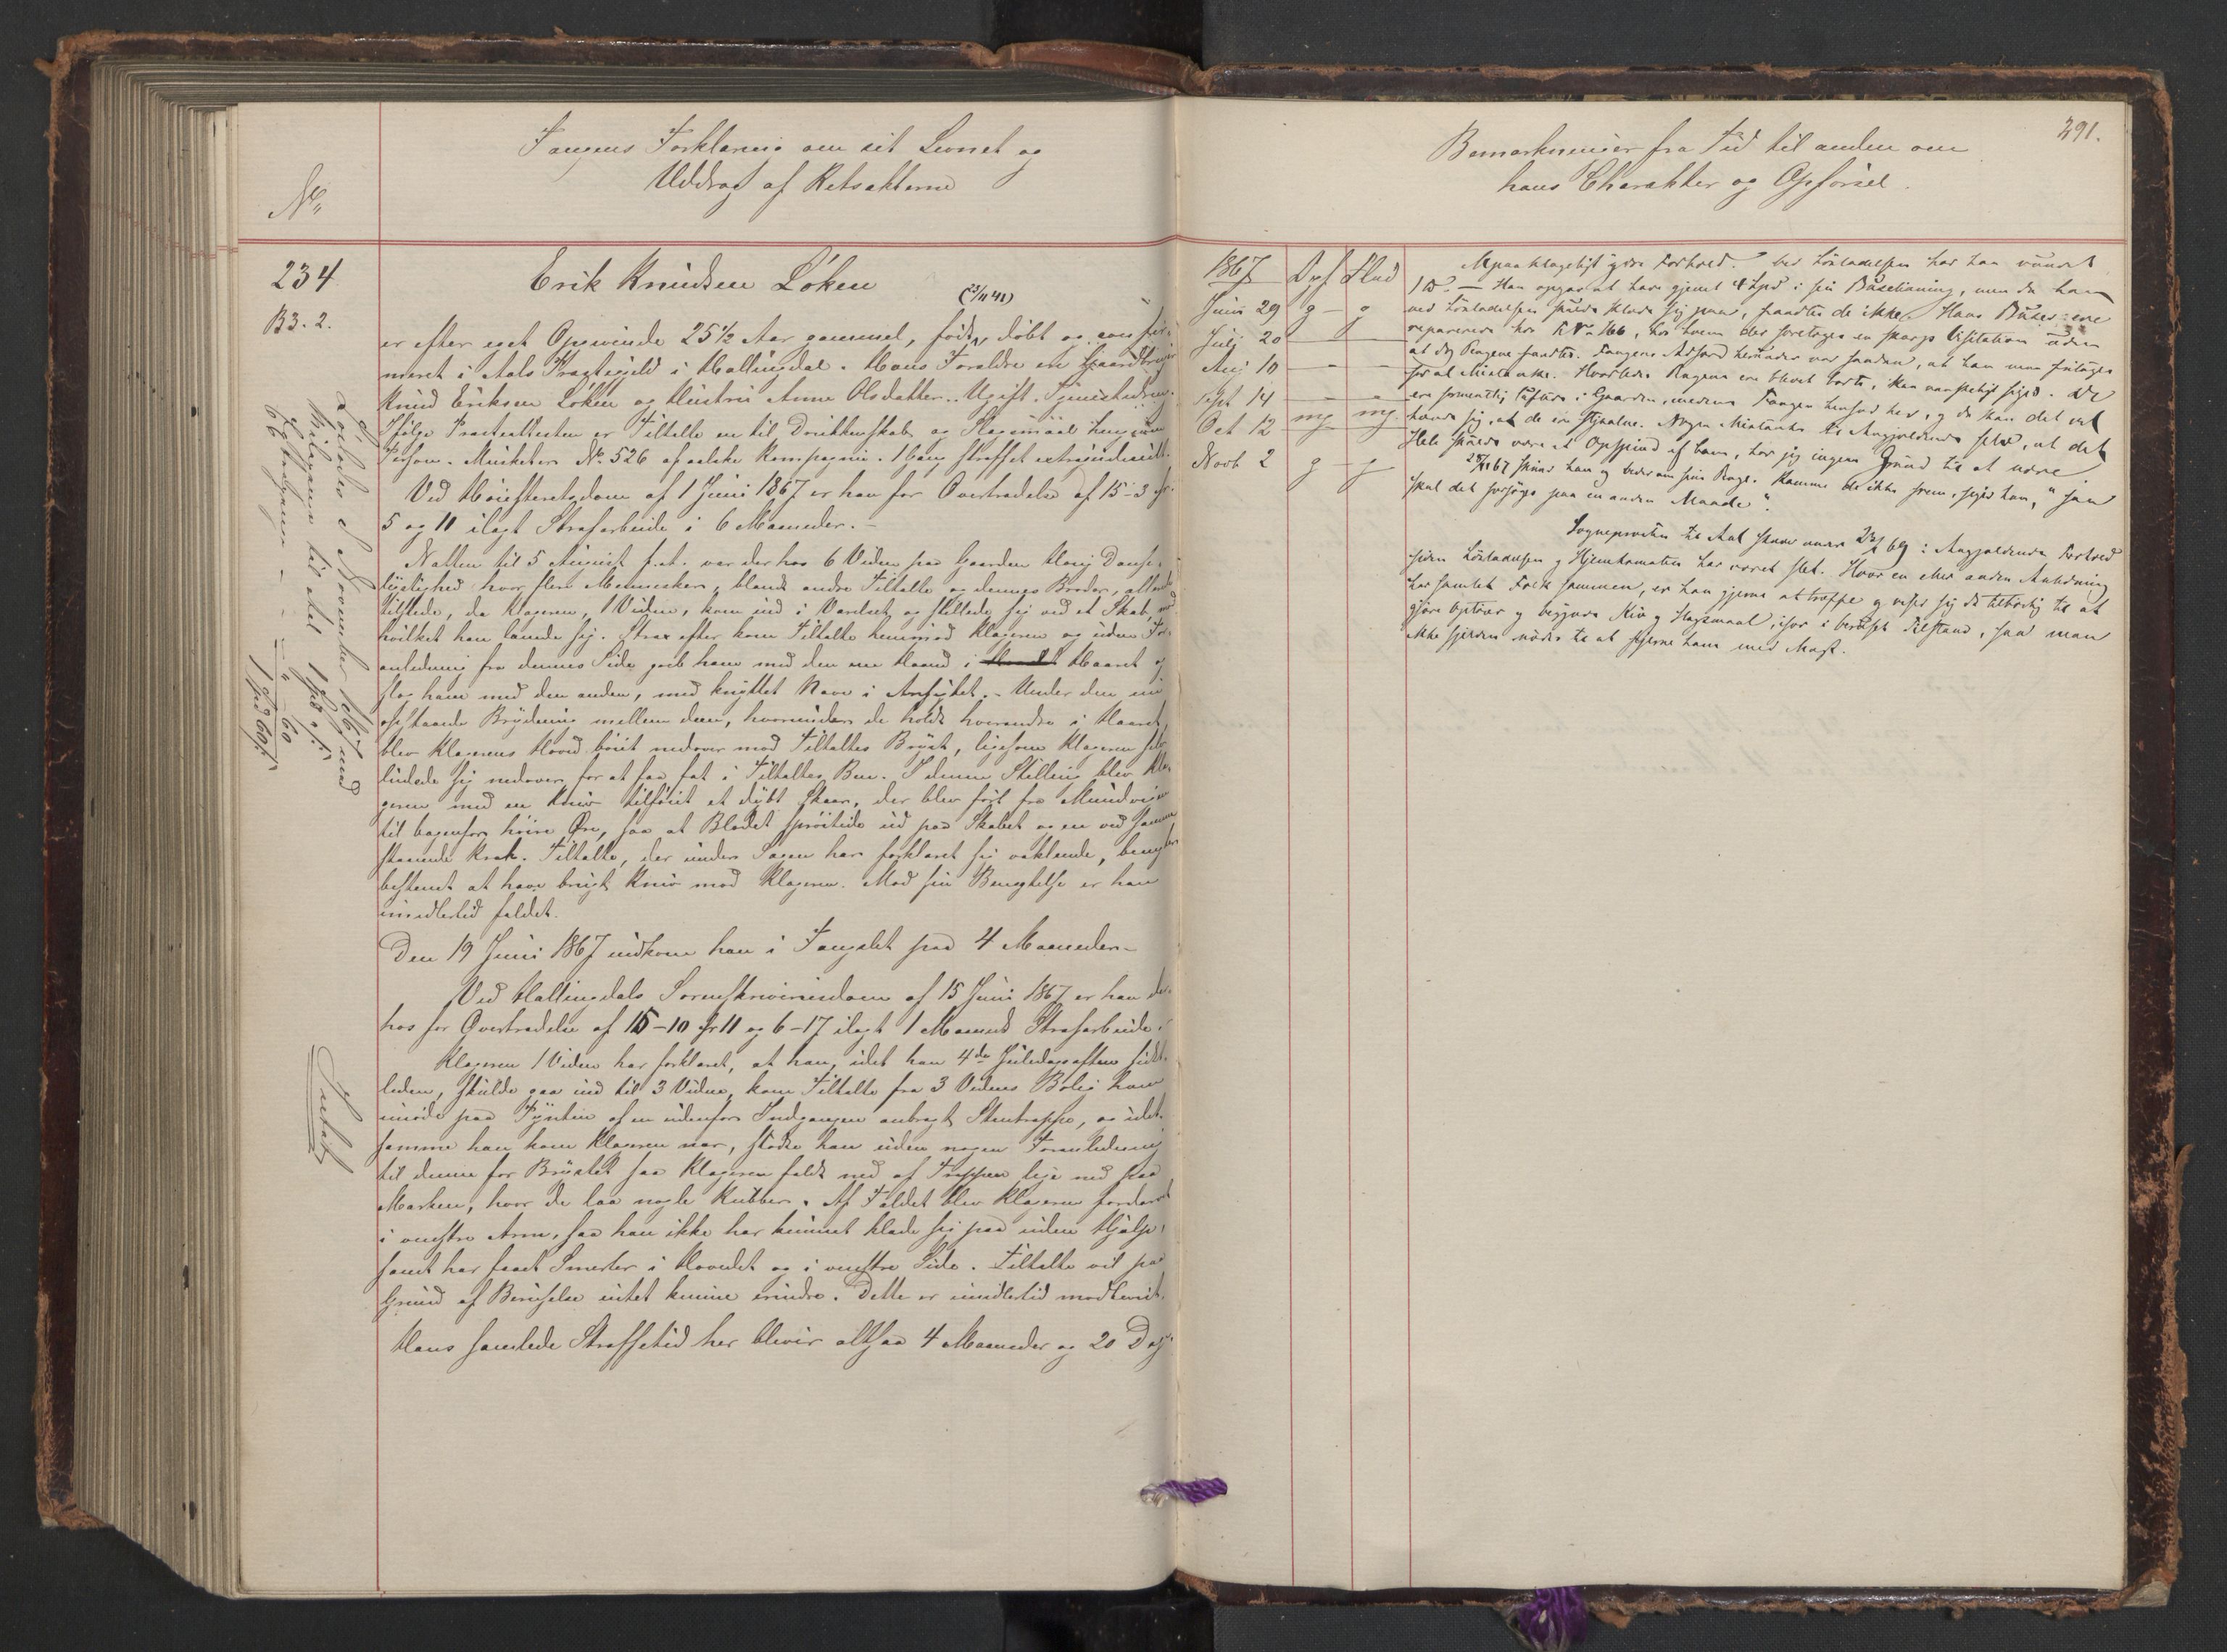 Fangens Forklaring om sit Levnet og
Uddrag af Retsakterne
No
234
B3. 2.
Erik Knudsen Løken
er efter eget Opgivende 25½ Aar gammel, født, døbt og confir-
meret i Aals Præstegjeld i Hallingdal. Hans Forældre ere Gaardbruger
Knud Eriksen Løken og Hustru Anne Olsdatter. Ugift.
Ifølge Præsteattesten er Tiltalte en til Drikkenskab og Slagsmaal hengiven
Person. Musketer No 526 af aalske Kompagni. 1 Gang straffet
Ved Høiesteretsdom af 1 Juni 1867 er han for Overtrædelse af 15-3 jfr.
5 og 11 ilagt Strafarbeide i 6 Maaneder.-
Natten til 5 August f.A. var der hos 6 Vidne paa Gaarden Danse-
lystighed hvor flere Mennesker, blandt andre Tiltalte og dennes Broder,
tilstede, da Klageren, 1 Vidne, kom ind i Værelset og stillede sig ved et Skab, mod
hvilket han lænede sig. Strax efter kom Tiltalte henimod Klageren og uden For-
anledning fra dennes Side greb ham med den ene Haand i Haaret og
slog ham med den anden, med knyttet Næve i Ansigtet.- Under den nu
opstaaede Brydning mellem dem, hvorunder de holdt hverandre i Haaret,
blev Klagerens Hoved bøiet nedover mod Tiltaltes Bryst, ligesom Klageren selv
ludede sig nedover for at faa fat i Tiltaltes Ben. I denne Stilling blev Kla-
geren med en Kniv tilføiet et dybt Skaar, der blev ført fra Mundvigen
til bagenfor høire Øre, saa at Blodet sprøitede ud paa Skabet og en ved samme
staaende Krak. Tiltalte, der under Sagen har forklaret sig vaklende, benegter
bestemt at have brugt Kniv mod Klageren. Mod sin Benegtelse er han
imidlertid fældet.
Den 19 Juni 1867 indkom han i Fangslet paa 4 Maaneder-
Ved Hallingdals Sorenskriveriesdom af 15 Juni 1867 er han der-
hos for Overtrædelse af 15-10 jfr 11 og 6-17 ilagt 1 Maaneds Strafarbeide.
Klageren 1 Vidne har forklaret, at han, idet han 4de Juledagsaften sidst-
leden, skulde gaa ind til 3 Vidne, kom Tiltalte fra 3 Vidnes Bolig ham
imøde paa af en udenfor Indgangen anbragt Stentrappe, og idet-
samme han kom Klageren nær, stødte han uden nogen Foranledning
til denne for Brystet saa Klageren faldt ned af Trappen lige ned paa
Marken, hvor der laa nogle Kubber. Af Faldet blev Klageren fordærvet
i venstre Arm, saa han ikke har kunnet klæde sig paa uden Hjælp,
samt har faaet Smerter i Hovedet og i venstre Side. Tiltalte vil paa
Grund af Beruselse intet kunne erindre. Dette er imidlertid modbevist.
Hans samlede Straffetid her bliver altsaa 4 Maaneder og 20 Dage
Løslades 2 November 1867 med
til Aal 1 Spd
60
1 Spd 60 s
291.
Bemærkninger fra Tid til anden om
hans Charakter og Opførsel.
1867 Opf Flid
Juni 29 g - g
Juli 20 - -
Aug 10 - -
Sept 14 - -
Oct 12 mg mg
Novb 2 g - g
Upaaklageligt ydre Forhold. Ved Løsladelsen har han
Han opgav at have gjemt 4 Spd i sin Buxelinning, men da han
ved Løsladelsen skulde klæde sig paa, fandtes de ikke. Hans Buxer ere
reparerede hos F No 166, hos hvem der foretoges en skarp Visitation uden
at dog Pengene fandtes. Fangens Adfærd herunder var saadan, at han maa fritages
for al Mistanke. Hvorledes Pengene ere blevet borte, kan vanskeligt siges. De
i Gaarden, medens Fangen hensad her, og da kan det vel
hænde sig, at de ere stjaalne. Nogen Mistanke til Angjældende selv, at det
Hele skulde være et Opspind af ham, har jeg ingen Grund til at nære
skriver han og beder om sine Penge. Komme de ikke frem, siger han, "saa
skal det forsøges paa en anden Maade".
Sognepresten til Aal skriver under 69: Angjældendes Forhold
siden Løsladelsen og Hjemkomsten har været slet. Hvor en eller anden Anledning
har samlet Folk sammen, er han gjerne at træffe og viser sig da tilbøielig til at
gjøre Optøier og begynde Kiv og Slagsmaal, især i beruset Tilstand, saa man
ikke sjelden nødes til at fjerne ham med Magt.